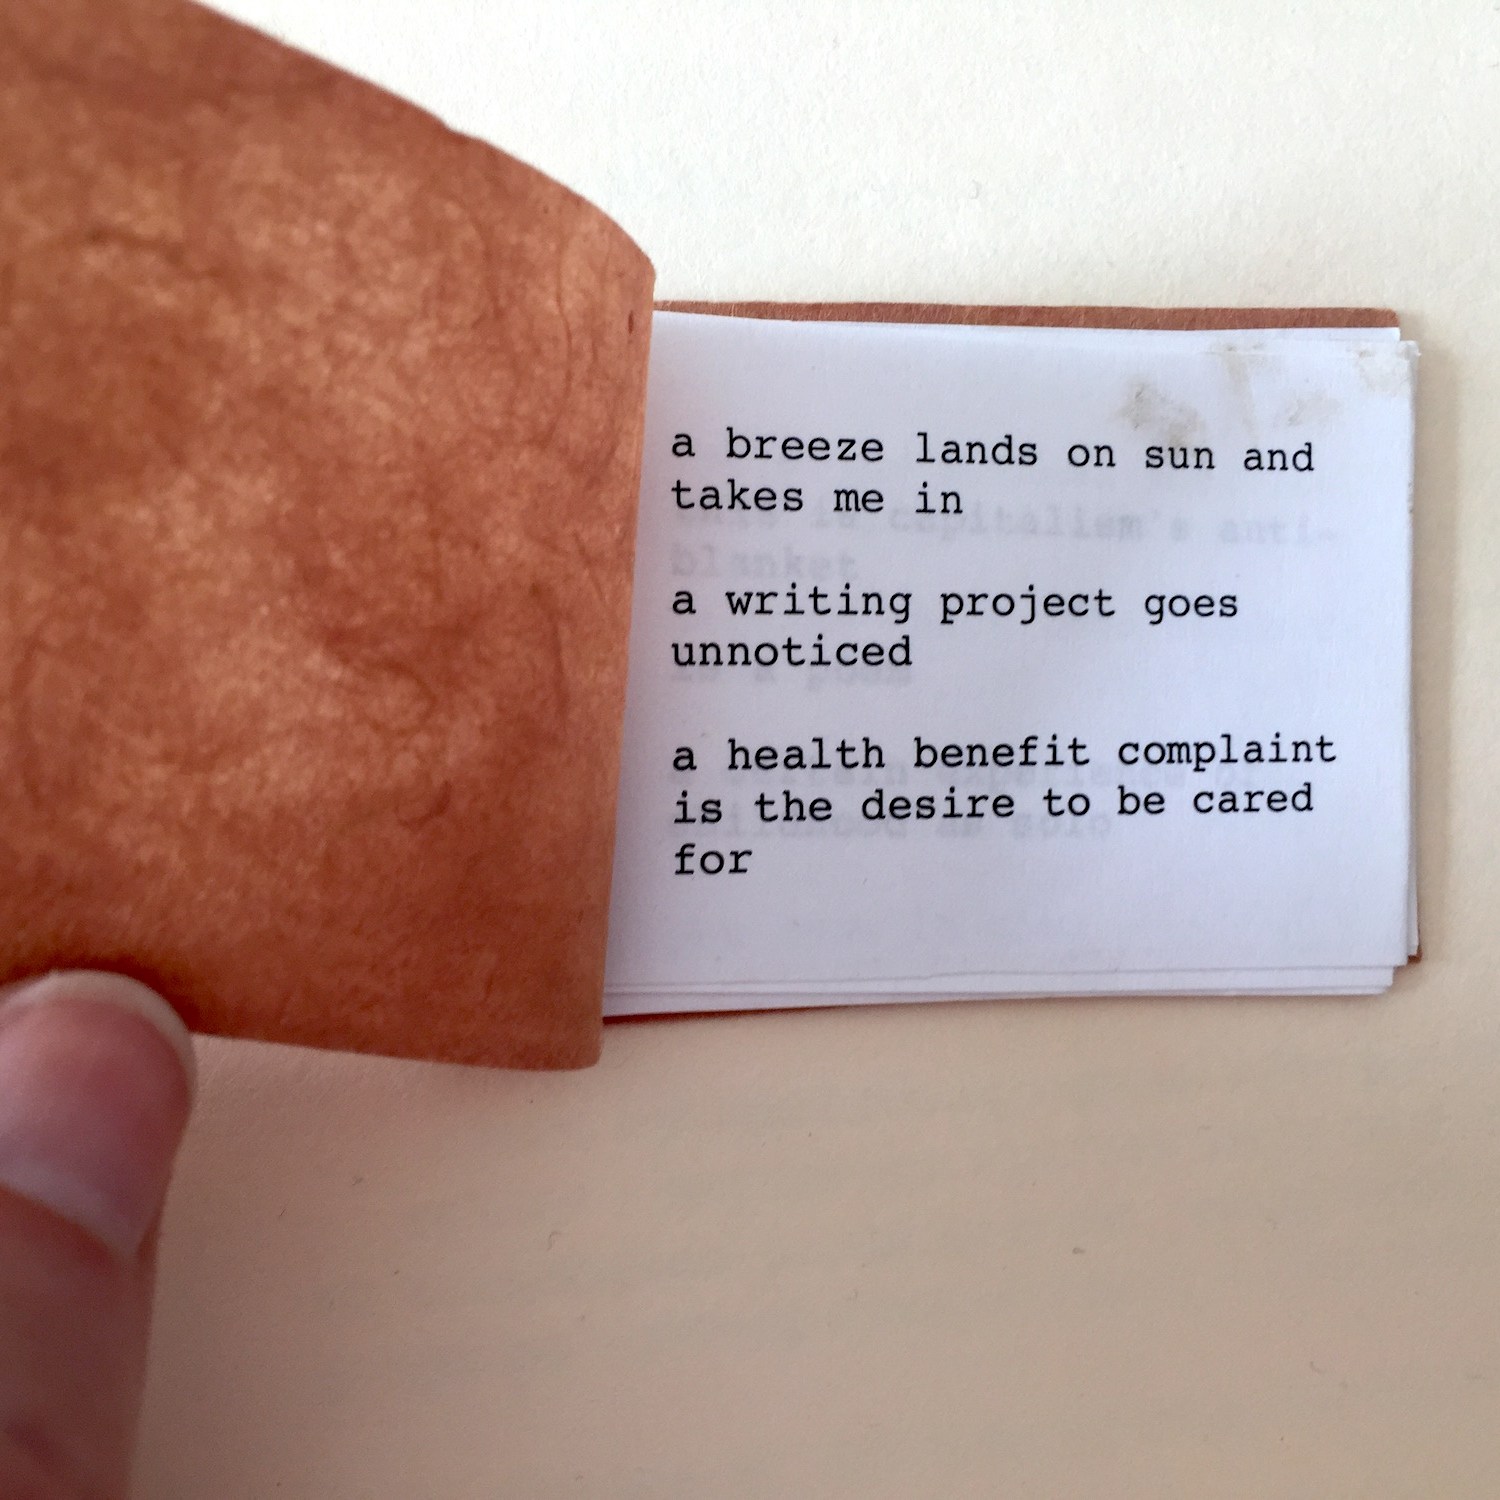 a breeze lands on sun and
takes me in
a writing project goes
unnoticed
a health benefit complaint
is the desire to be cared
for